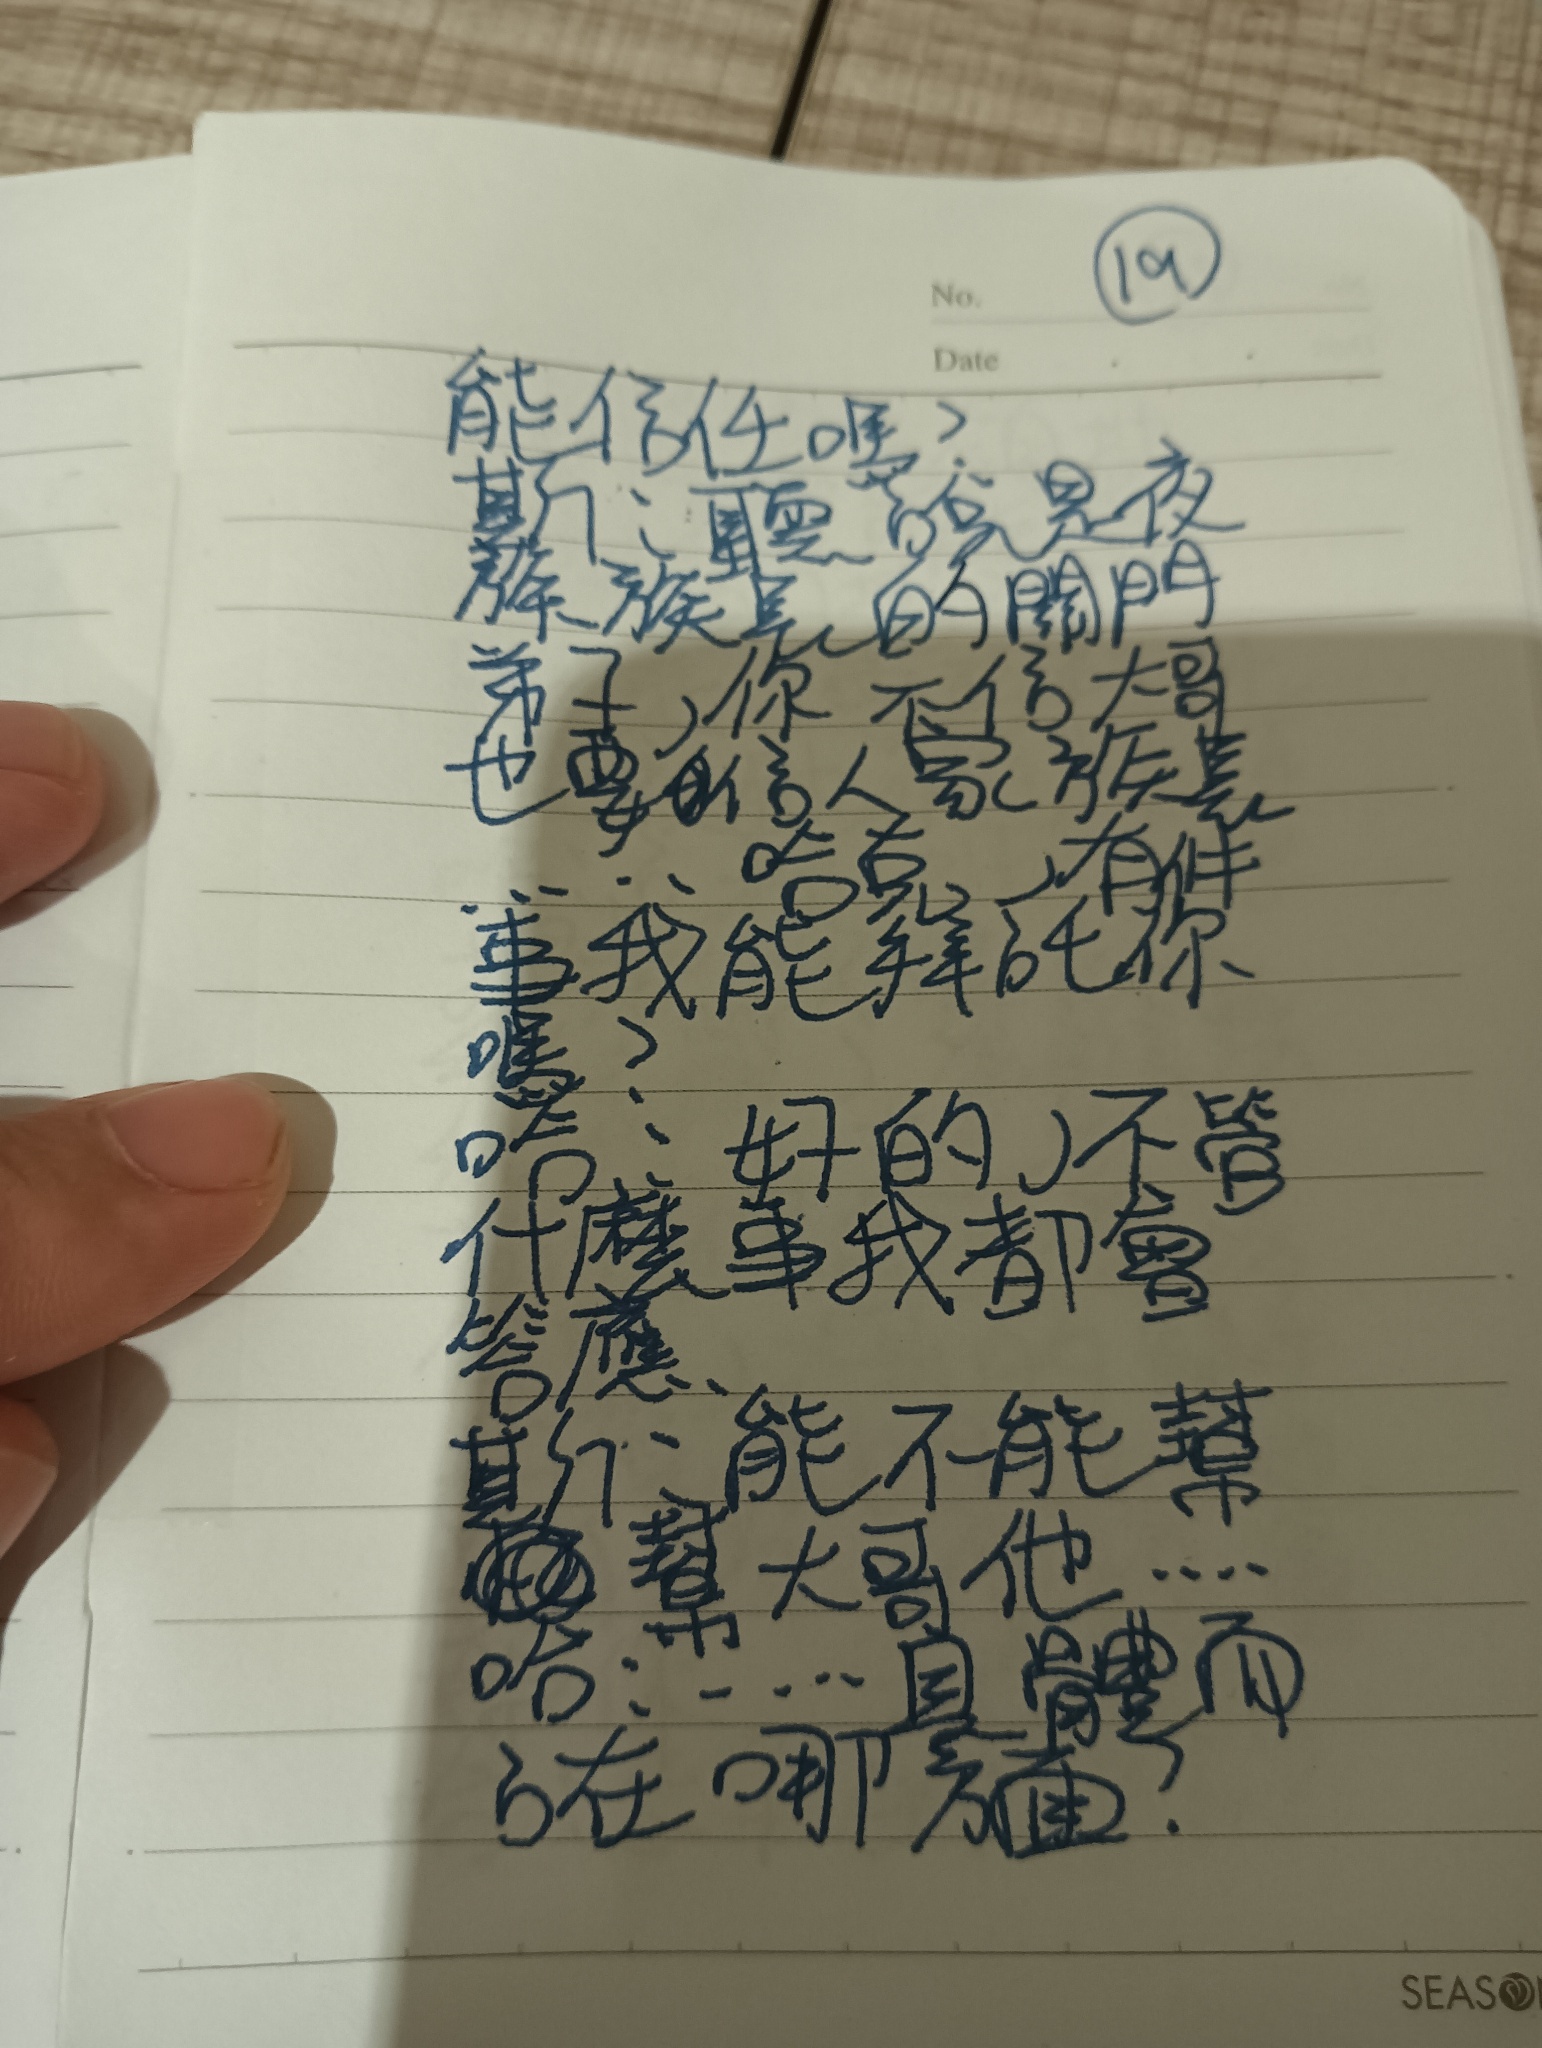 19
No.
Date
能信任嗎?
斯:聽說是夜
族族長的關門
弟子,你不信大哥
也要相信人家族長
:哈克,有件
事我能拜託你
嗎?
哈:好的,不管
什麼事我都會
答應
斯:能不能幫
幫大哥他....
哈:.....具體而
言在哪方面?
SEASON